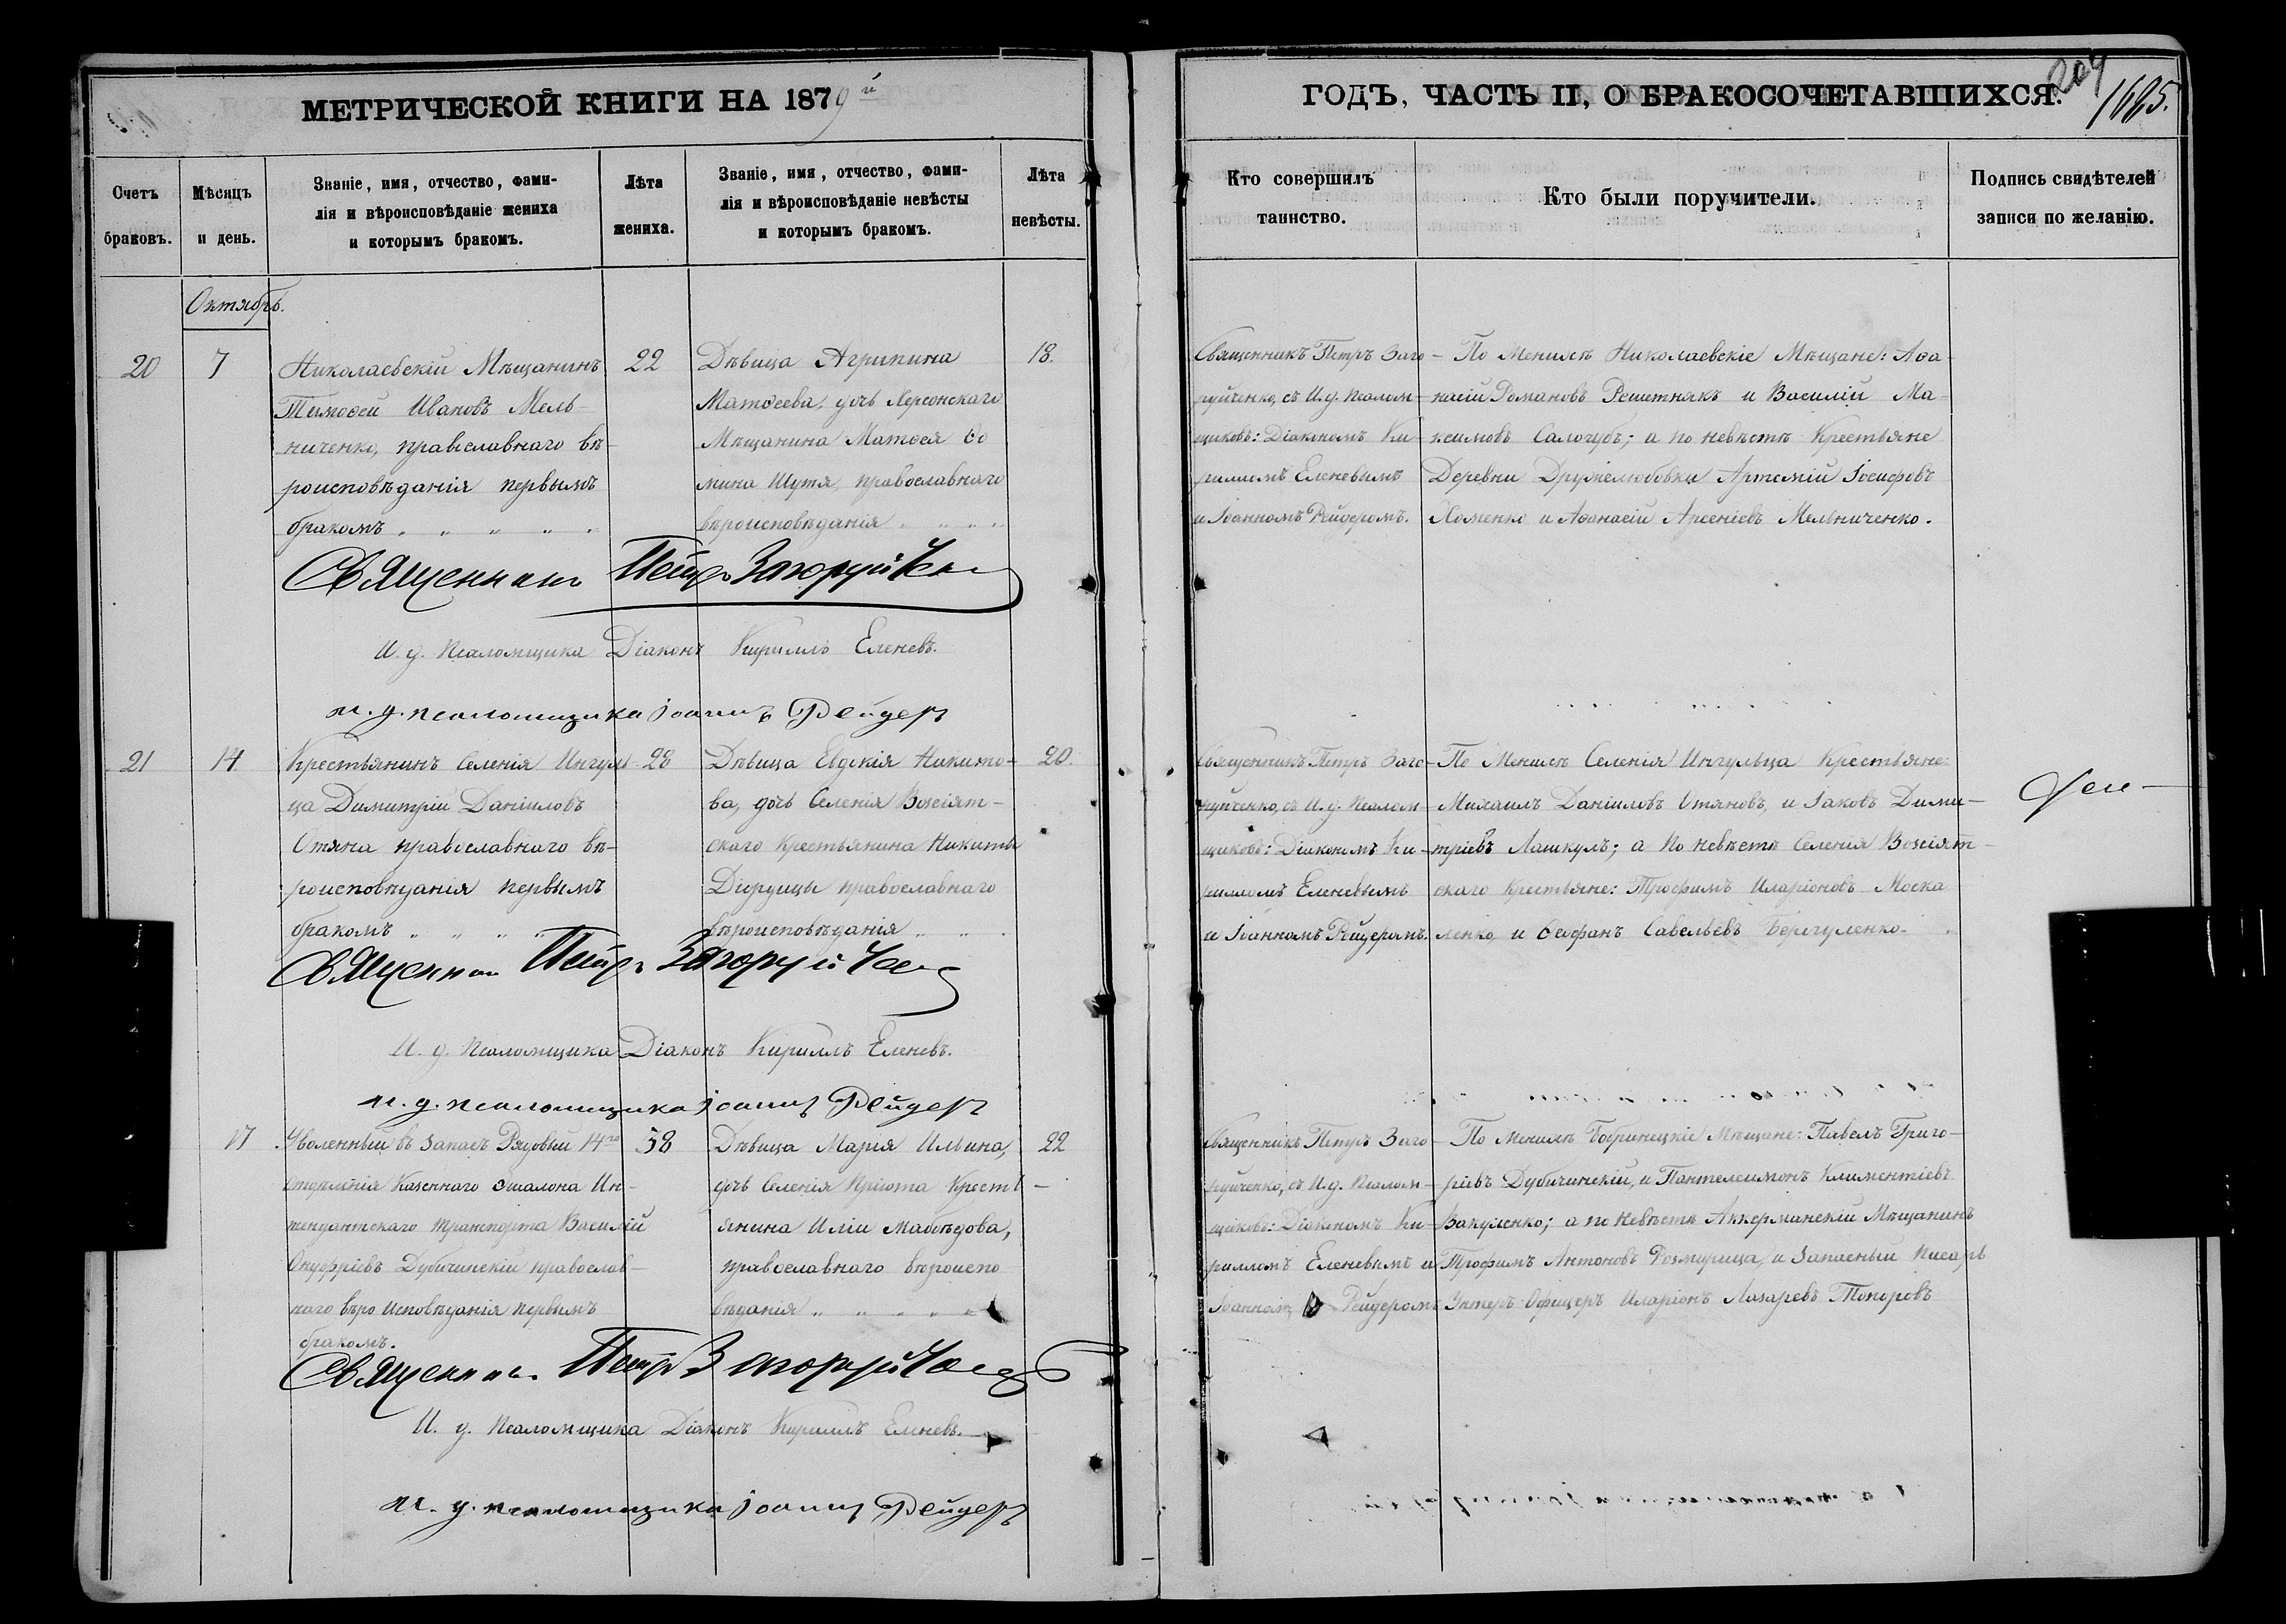 МЕТРИЧЕСКОЙ КНИГИ НА 1879й
ГОДЪ, ЧАСТЬ II, О БРАКОСОЧЕТАВШИХСЯ.
204
1685.
Счетъ браковъ.
Мѣсяцъ и день.
Званіе, имя, отчество, фами-
лія и вѣроисповѣданіе жениха
и которымъ бракомъ.
Лѣта жениха.
Званіе, имя, отчество, фами-
лія и вѣроисповѣданіе невѣсты
и которымъ бракомъ.
Лѣта невѣсты.
Кто совершилъ
таинство.
Кто были поручители.
Подпись свидѣтелей
записи по желанію.
Октябрь.
20
7
Николаевскій Мѣщанинъ
Тимоѳей Ивановъ Мель-
ниченко, православнаго вѣ-
роисповѣданія первымъ
бракомъ
22
Дѣвица Агрипина
Матѳеева, дочь Херсонскаго
Мѣщанина Матѳея Ѳо
мина Шутя, православнаго
вѣроисповѣданія
18.
Священникъ Петръ Заго-
руйченко, съ И. д. Псалом-
щиковъ: Діакономъ Ки-
рилломъ Еленевымъ
и Іоанномъ Рейдеромъ.
По Женихѣ Николаевскіе Мѣщане: Аѳа-
насій Романовъ Решетнякъ и Василій Ма-
ксимовъ Салогубъ; а по невѣстѣ Крестьяне
Деревни Дружелюбовки Артемій Іосифовъ
Хоменко и Аѳанасій Арсеніевъ Мельниченко.
Священникъ Петръ Загоруйченко
И. д. Псаломщика Діаконъ Кириллъ Еленевъ.
и. д. псаломщика Іоаннъ Рейдеръ
21
14
Крестьянинъ Селенія Ингуль-
ца Димитрій Даніиловъ
Отяна православнаго вѣ-
роисповѣданія первымъ
бракомъ
28
Дѣвица Евдокія Никито-
ва, дочь Селенія Возсіят-
скаго Крестьянина Никиты
Діордицы православнаго
вѣроисповѣданія
20.
Священникъ Петръ Заго-
руйченко, съ И. д. Псалом-
щиковъ: Діакономъ Ки-
рилломъ Еленевымъ
и Іоанномъ Рейдеромъ.
По Женихѣ Селенія Ингульца Крестьяне:
Михаилъ Даніиловъ Отяновъ, и Іаковъ Дими-
тріевъ Лашкулъ; а по невѣстѣ Селенія Возсіят-
скаго Крестьяне: Трофимъ Иларіоновъ Моска
ленко, и Ѳеофанъ Савельевъ Берегуленко
Священникъ Петръ Загоруйченко
И. д. Псаломщика Діаконъ Кириллъ Еленевъ.
и. д. псаломщика Іоаннъ Рейдеръ
17
Уволенный въ запасъ Рядовый 14го
Отдѣленія Казеннаго Эшалона Ин-
тендантскаго Транспорта Василій
Онуфріевъ Дубичинскій православ-
наго вѣроисповѣданія первымъ
бракомъ.
38
Дѣвица Марія Ильина,
дочь Селенія Пріюта Кресть-
янина Иліи Мабѣдова,
православнаго вѣроиспо
вѣданія
22
Священникъ Петръ Заго-
руйченко, съ И. д. Псалом-
щиковъ: Діакономъ Ки-
рилломъ Еленевымъ и
Іоанномъ Рейдеромъ
По Женихѣ Бобринецкіе Мѣщане: Павелъ Григо-
ріевъ Дубичинскій, и Пантелеимонъ Климентіевъ
Вакуленко; а по невѣстѣ Аккерманскій Мѣщанинъ
Трофимъ Антоновъ Розмирица, и Запасный Писарь
Унтеръ-Офицеръ Иларіонъ Лазаревъ Токоровъ
Священникъ Петръ Загоруйченко
И. д. Псаломщика Діаконъ Кириллъ Еленевъ.
и. д. псаломщика Іоаннъ Рейдеръ